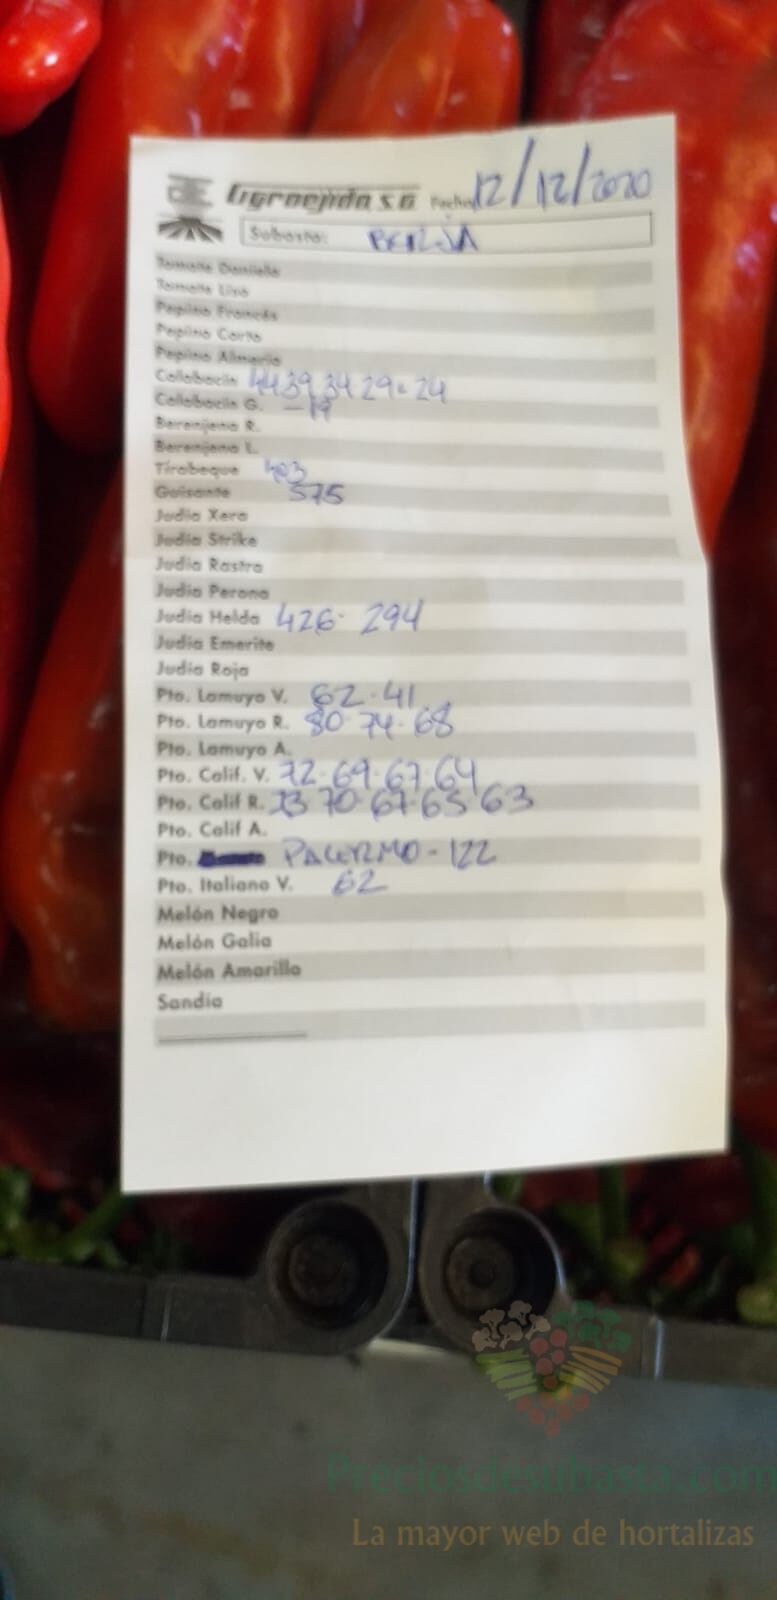 Agroejido S.A. Fecha 12/12/2020
Subasta: BERJA
Tomate Daniela
Tomate Liso
Pepino Francés
Pepino Corto
Pepino Almería
Calabacín 44 39 34 29 24
Calabacín G. - 19
Berenjena R.
Berenjena L.
Tirabeque 403
Guisante 575
Judía Xera
Judía Strike
Judía Rastra
Judía Perona
Judía Helda 426 - 294
Judía Emerite
Judía Roja
Pto. Lamuyo V. 62 - 41
Pto. Lamuyo R. 80 - 74 - 68
Pto. Lamuyo A.
Pto. Calif. V. 72 - 69 - 67 - 64
Pto. Calif R. 73 70 - 67 - 65 - 63
Pto. Calif A.
Pto. PALERMO - 122
Pto. Italiano V. 62
Melón Negro
Melón Galia
Melón Amarillo
Sandía
Preciosdesubasta.com
La mayor web de hortalizas